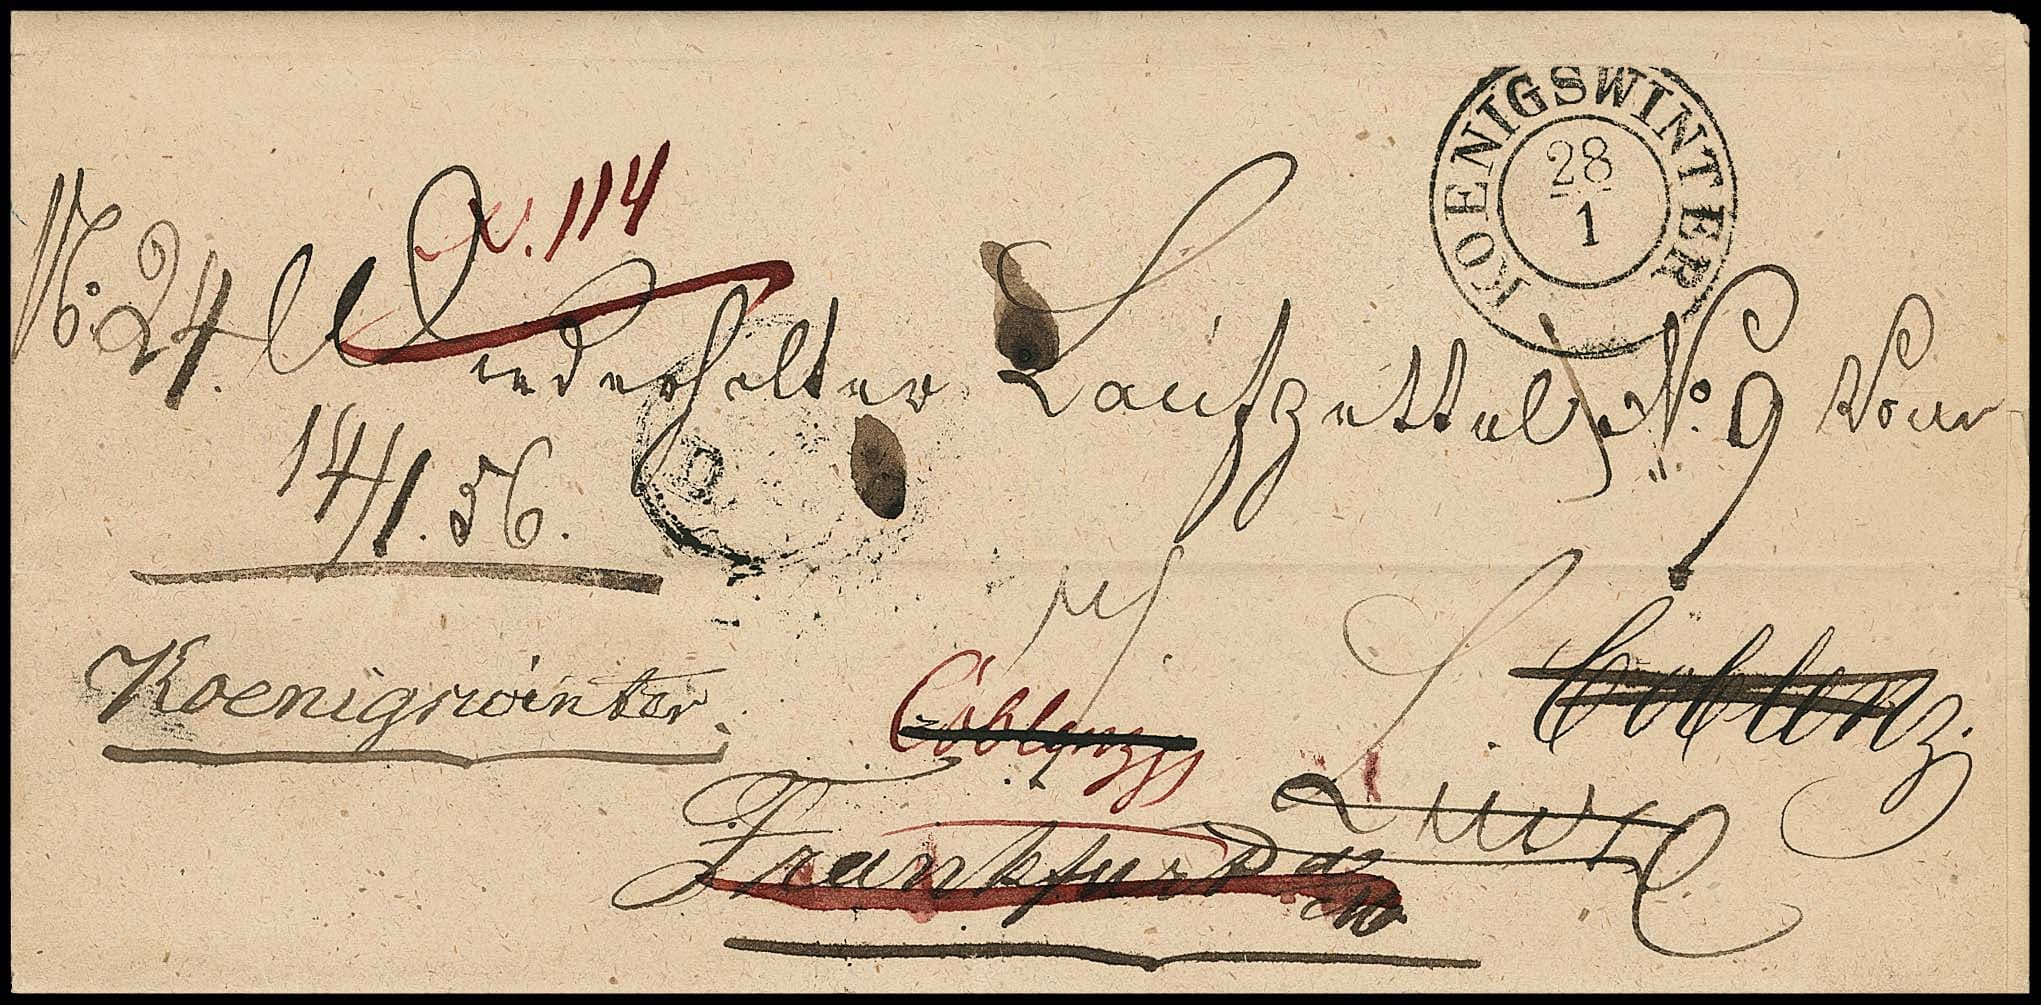 KOENIGSWINTER
28
1
N. 114
No. 24. Wiederholter Laufzettel No. 9 Vom
14/1. 56.
Koenigswinter.
Coblenz.
Coblenz
Frankfurt a/M